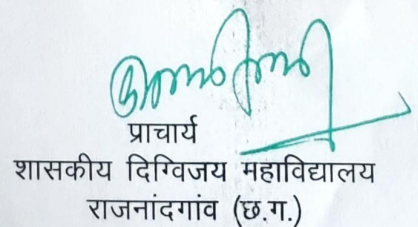 प्राचार्य
शासकीय दिग्विजय महाविद्यालय
राजनांदगांव (छ.ग.)